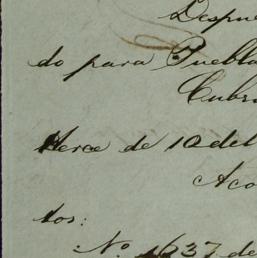 Despue
do para Puebla
Cubr
Merce de 10 del
Aco
tos:
Nº 1237 de